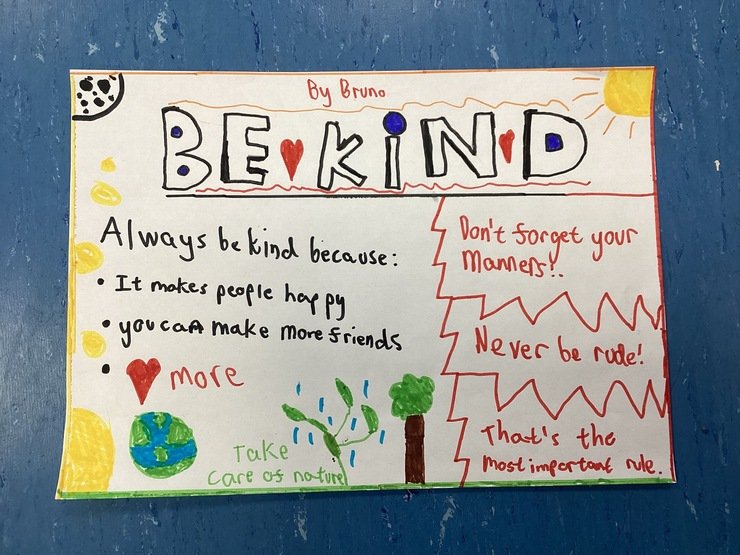 By Bruno
BE KiND
Always be kind because:
• It makes people happy
• you can make more friends
• more
Take
care of nature
Don't forget your
Manners!.
Never be rude!
That's the
most important rule.